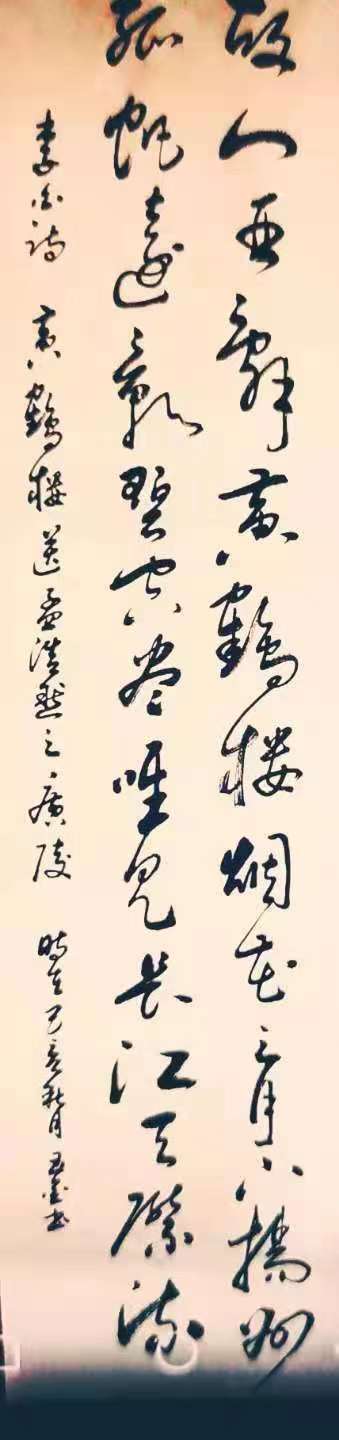 故人西辭黄鶴楼烟花三月下揚州
孤帆遠影碧空尽唯見長江天際流
李白詩 黄鶴楼送孟浩然之廣陵 時在己亥秋月 書